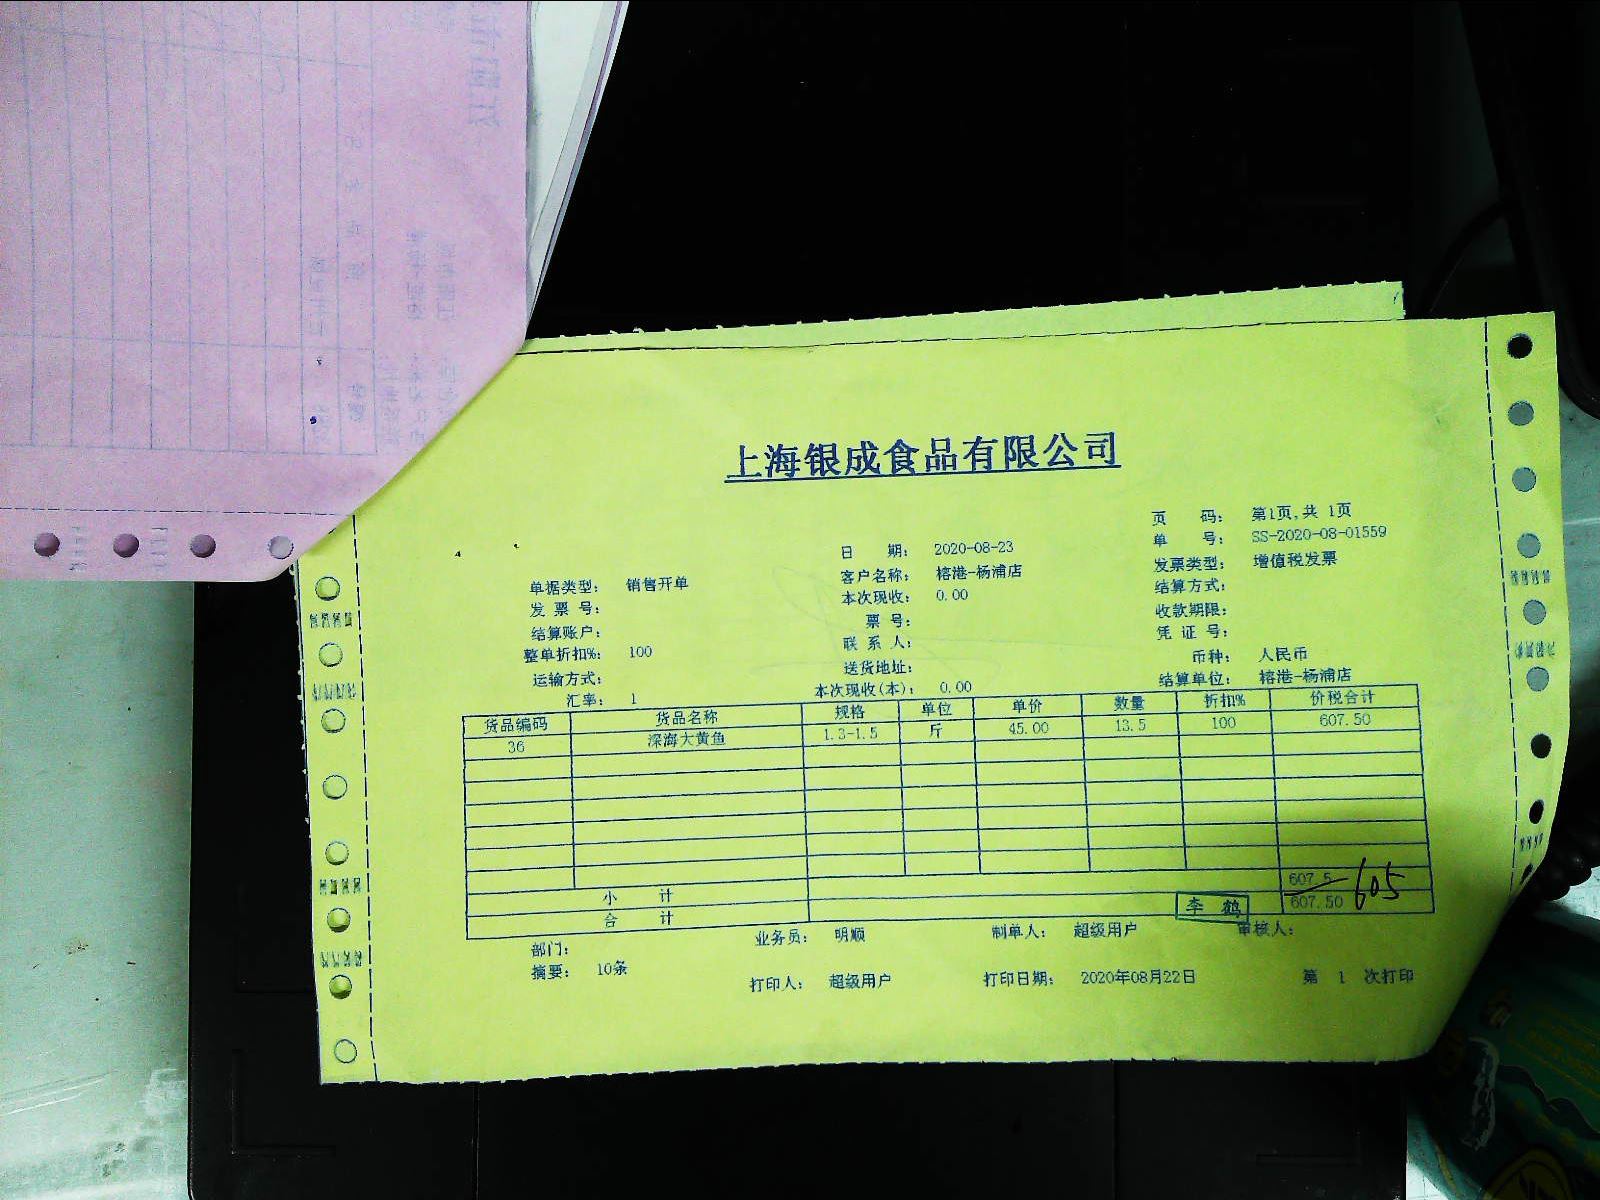 上海银成食品有限公司
页 码: 第1页,共 1页
日 期: 2020-08-23 单 号: SS-2020-08-01559
单据类型: 销售开单 客户名称: 榕港-杨浦店 发票类型: 增值税发票
发 票 号: 本次现收: 0.00 结算方式:
结算账户: 票 号: 收款期限:
整单折扣%: 100 联 系 人: 凭 证 号:
运输方式: 送货地址: 币种: 人民币
汇率: 1 本次现收(本): 0.00 结算单位: 榕港-杨浦店
货品编码 货品名称 规格 单位 单价 数量 折扣% 价税合计
36 深海大黄鱼 1.3-1.5 斤 45.00 13.5 100 607.50
小 计 607.5 605
合 计 607.50
李 鹤
部门: 业务员: 明顺 制单人: 超级用户 审核人:
摘要: 10条 打印人: 超级用户 打印日期: 2020年08月22日 第 1 次打印